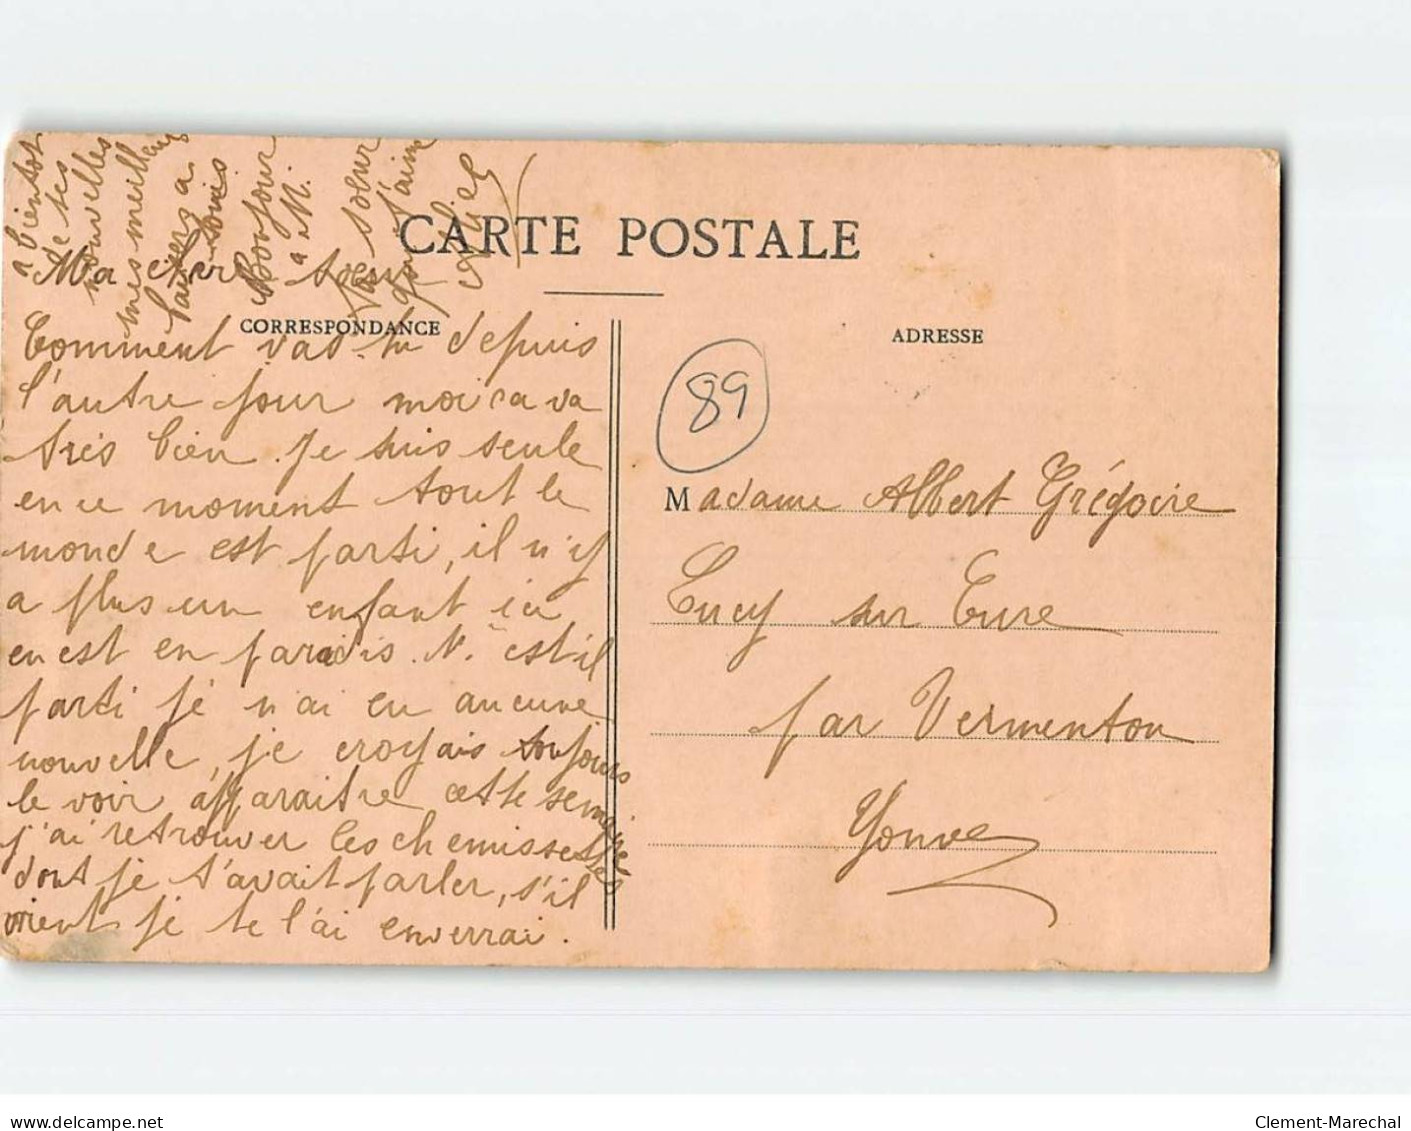 CARTE POSTALE
CORRESPONDANCE
ADRESSE
89
Ma chère soeur
Comment vas-tu depuis
l'autre jour moi ca va
très bien. je suis seule
en ce moment tout le
monde est parti, il n'y
a plus un enfant ici
on est en paradis. N. est-il
parti je n'ai eu aucune
nouvelle, je croyais toujours
le voir apparaitre cette semaine
j'ai retrouver les chemisettes
dont je t'avait parler, s'il
vient je te l'ai enverrai.
a bientot
de tes
nouvelles
mes meilleurs
baisers a
Louis
Bonjour
a M.
Ta soeur
qui t'aime
Madame Albert Grégoire
Lucy sur Cure
par Vermenton
Yonne
delcampe.net
Clement-Marechal